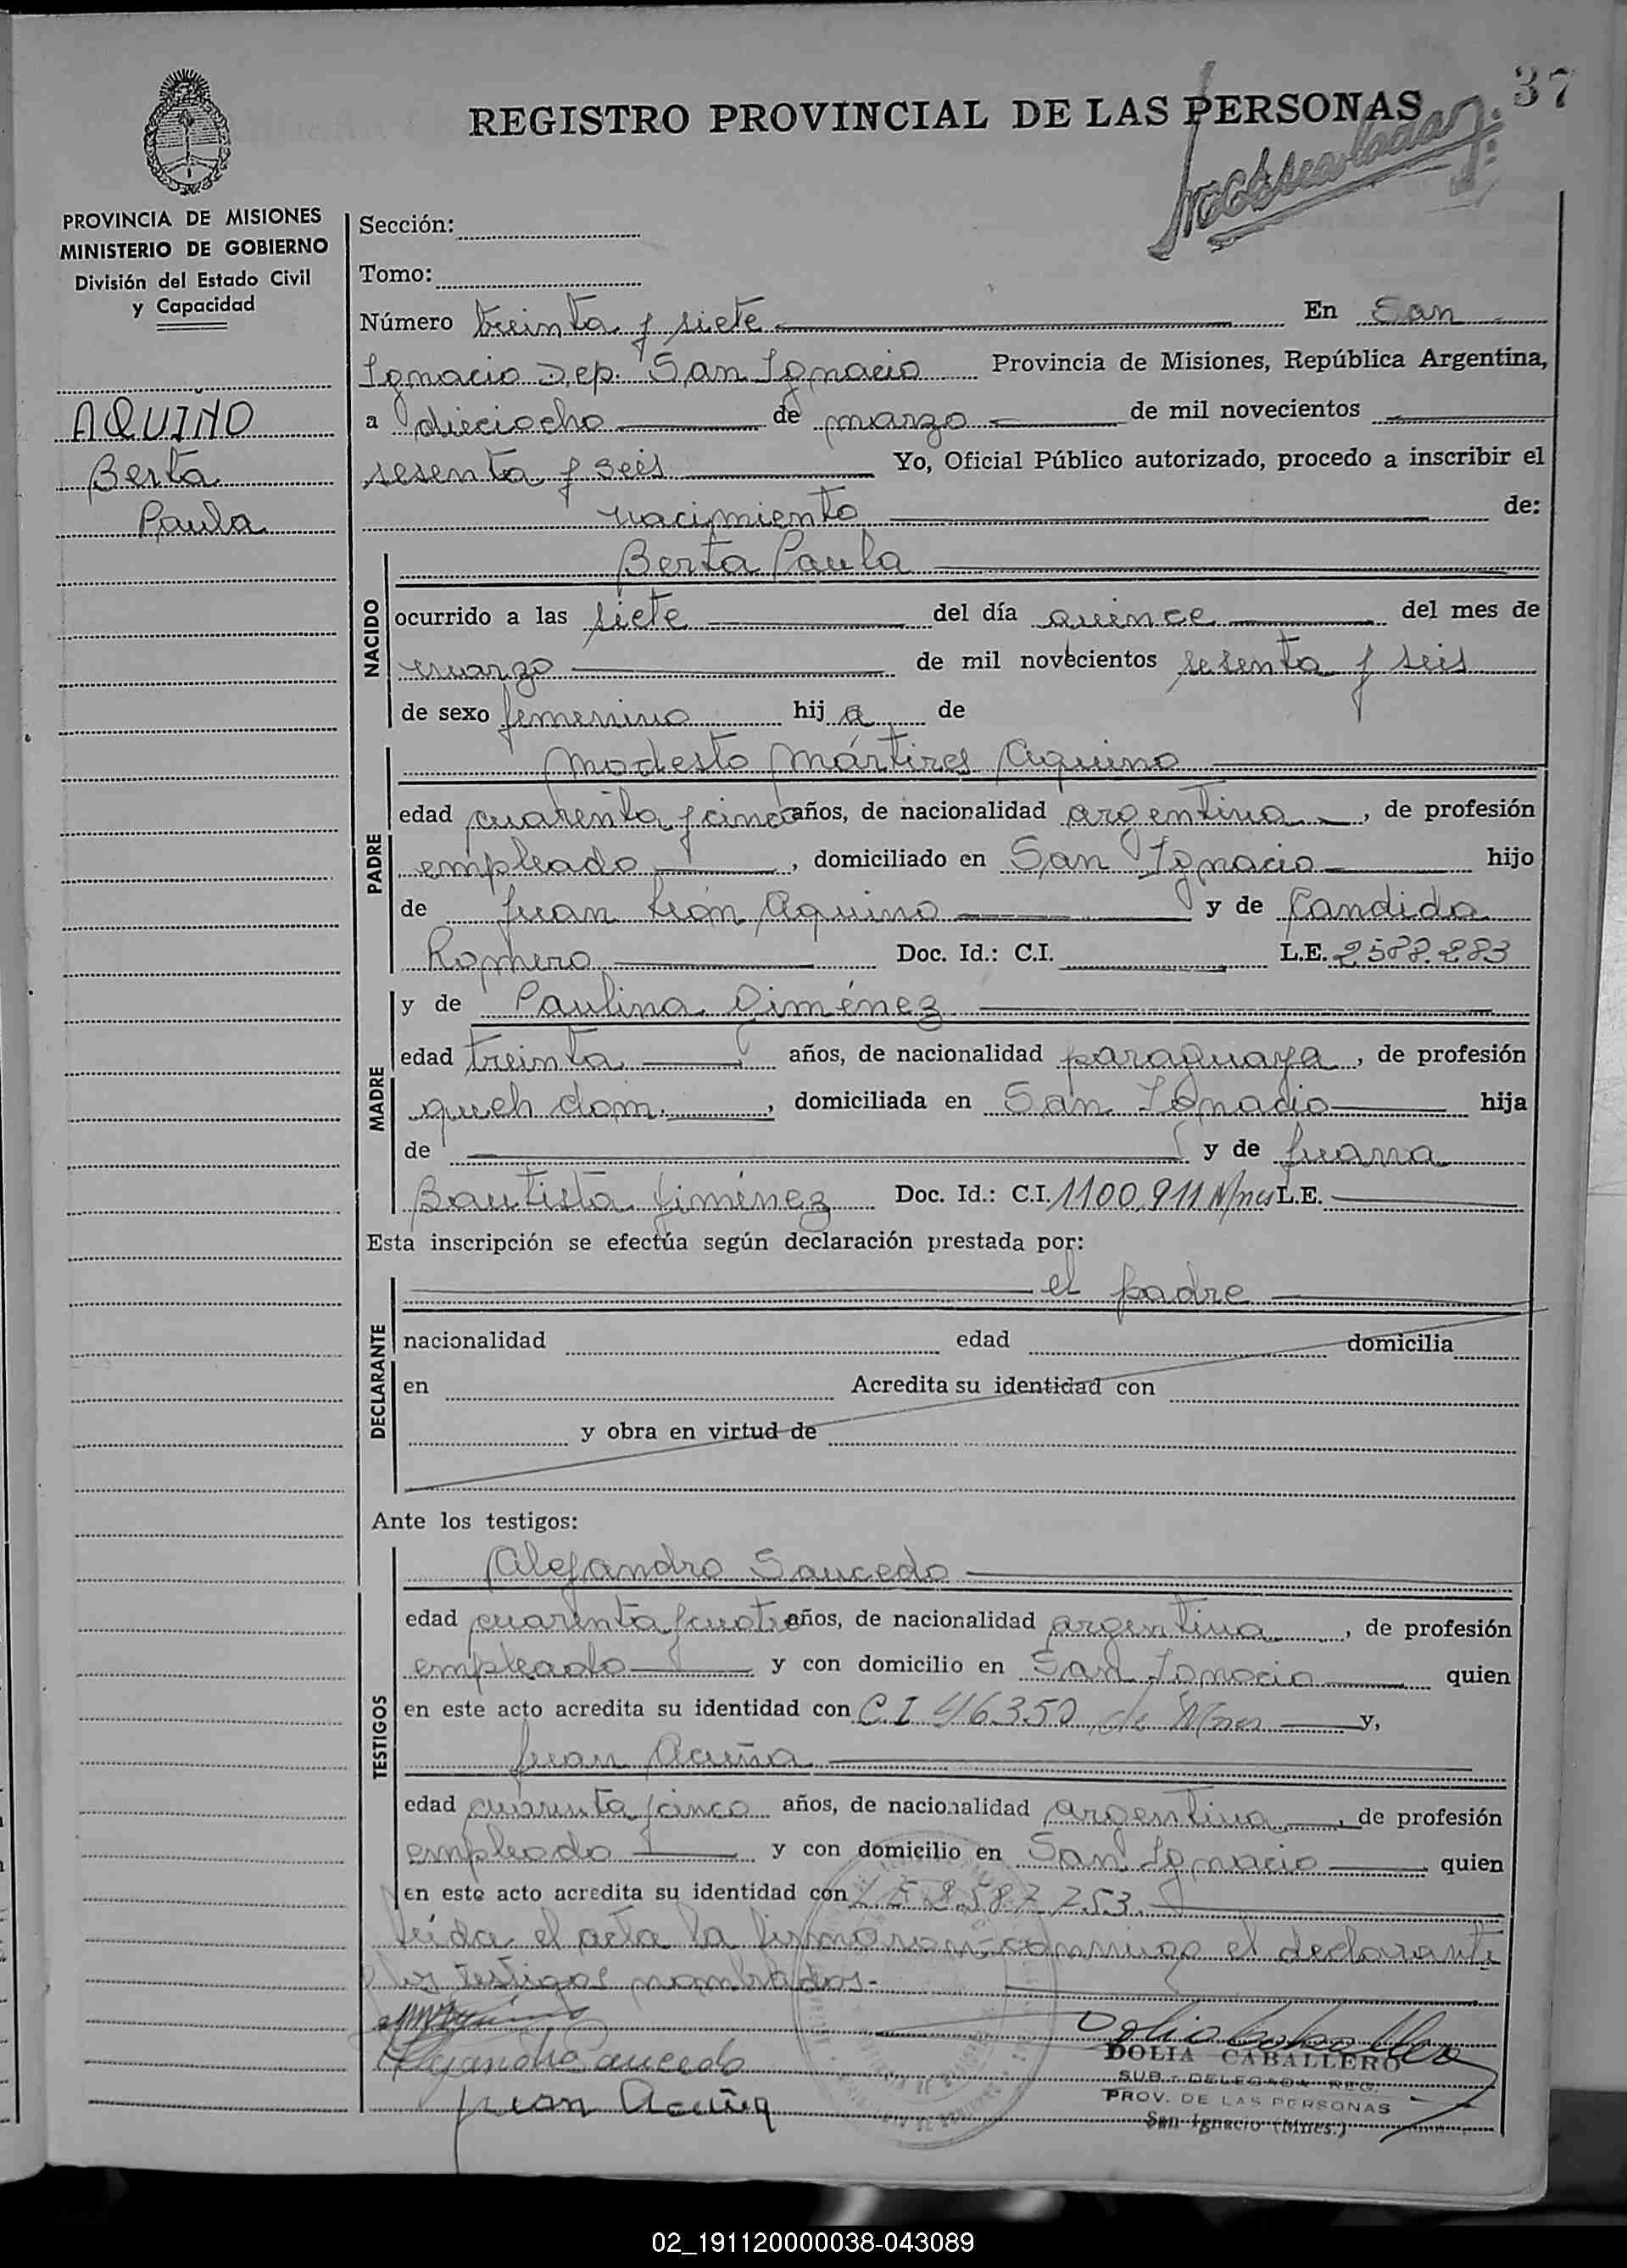 37
REGISTRO PROVINCIAL DE LAS PERSONAS
PROVINCIA DE MISIONES
MINISTERIO DE GOBIERNO
División del Estado Civil
y Capacidad
AQUINO
Berta
Paula
Sección:
Tomo:
Número treinta y siete En San
Ignacio Dep. San Ignacio Provincia de Misiones, República Argentina,
a dieciocho de marzo de mil novecientos
sesenta y seis Yo, Oficial Público autorizado, procedo a inscribir el
nacimiento de:
NACIDO
Berta Paula
ocurrido a las siete del día quince del mes de
marzo de mil novecientos sesenta y seis
de sexo femenino hij a de
PADRE
Modesto Mártires Aquino
edad cuarenta y cinco años, de nacionalidad argentina, de profesión
empleado, domiciliado en San Ignacio hijo
de Juan León Aquino y de Candida
Romero Doc. Id.: C.I. L.E.
MADRE
y de Paulina Giménez
edad treinta años, de nacionalidad paraguaya, de profesión
queh dom., domiciliada en San Ignacio hija
de y de Juana
Bautista Jiménez Doc. Id.: C.I. 1100.911 Mnes L.E.
Esta inscripción se efectúa según declaración prestada por:
DECLARANTE
el padre
nacionalidad edad domicilia
en Acredita su identidad con
y obra en virtud de
Ante los testigos:
TESTIGOS
Alejandro Saucedo
edad cuarenta y cuatro años, de nacionalidad argentina, de profesión
empleado y con domicilio en San Ignacio quien
en este acto acredita su identidad con C I 46350 de Mnes y,
Juan Acuña
edad cuarenta y cinco años, de nacionalidad argentina, de profesión
empleado y con domicilio en San Ignacio quien
en este acto acredita su identidad con
leída el acta la firmaron conmigo el declarante
y los testigos nombrados.-
Alejandro Saucedo
Juan Acuña
DOLIA CABALLERO
SUB-DELEGADA REG.
PROV. DE LAS PERSONAS
San Ignacio (Mnes.)
02_191120000038-043089